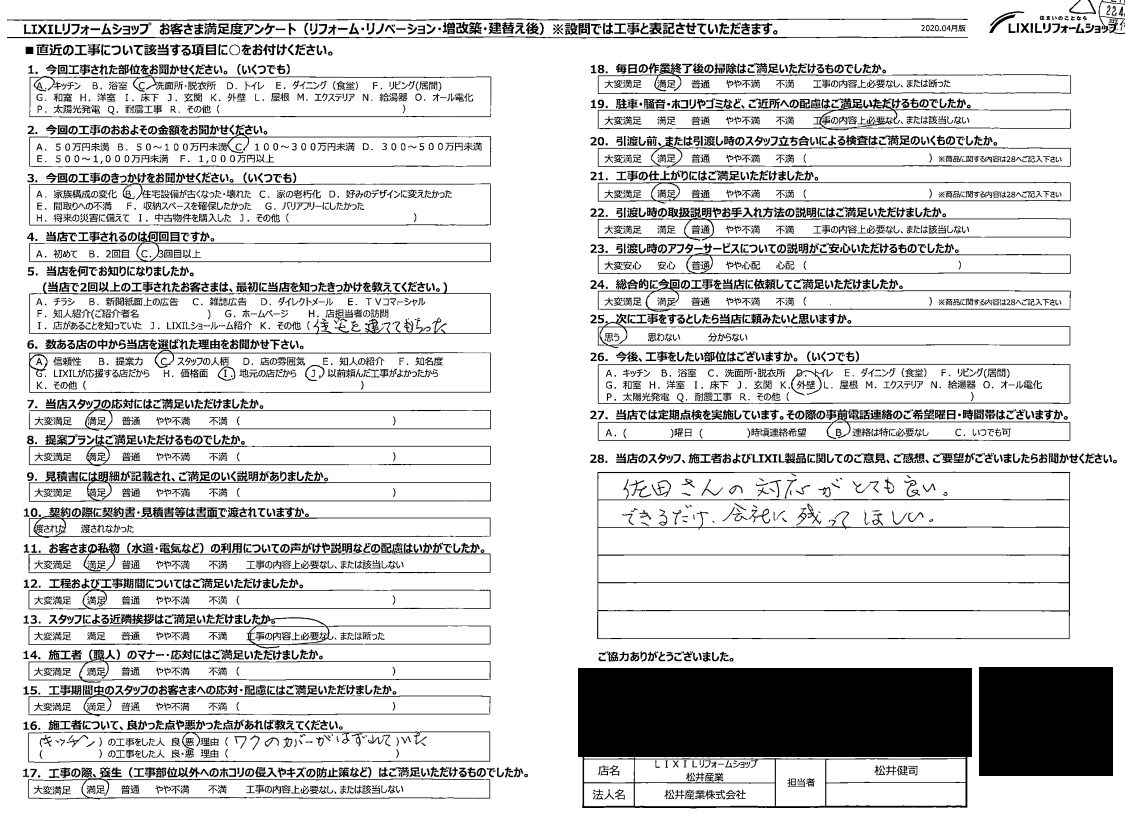 LIXILリフォームショップ お客さま満足度アンケート（リフォーム・リノベーション・増改築・建替え後）※設問では工事と表記させていただきます。
2020.04月版
住まいのことなら
LIXILリフォームショップ
■直近の工事について該当する項目に○をお付けください。
1．今回工事された部位をお聞かせください。（いくつでも）
A．キッチン B．浴室 C．洗面所・脱衣所 D．トイレ E．ダイニング（食堂） F．リビング(居間)
G．和室 H．洋室 I．床下 J．玄関 K．外壁 L．屋根 M．エクステリア N．給湯器 O．オール電化
P．太陽光発電 Q．耐震工事 R．その他（ ）
2．今回の工事のおおよその金額をお聞かせください。
A．50万円未満 B．50～100万円未満 C．100～300万円未満 D．300～500万円未満
E．500～1,000万円未満 F．1,000万円以上
3．今回の工事のきっかけをお聞かせください。（いくつでも）
A．家族構成の変化 B．住宅設備が古くなった・壊れた C．家の老朽化 D．好みのデザインに変えたかった
E．間取りへの不満 F．収納スペースを確保したかった G．バリアフリーにしたかった
H．将来の災害に備えて I．中古物件を購入した J．その他（ ）
4．当店で工事されるのは何回目ですか。
A．初めて B．2回目 C．3回目以上
5．当店を何でお知りになりましたか。
(当店で2回以上の工事されたお客さまは、最初に当店を知ったきっかけを教えてください。)
A．チラシ B．新聞紙面上の広告 C．雑誌広告 D．ダイレクトメール E．TVコマーシャル
F．知人紹介(ご紹介者名 ) G．ホームページ H．店担当者の訪問
I．店があることを知っていた J．LIXILショールーム紹介 K．その他（住宅を建ててもらった
6．数ある店の中から当店を選ばれた理由をお聞かせ下さい。
A．信頼性 B．提案力 C．スタッフの人柄 D．店の雰囲気 E．知人の紹介 F．知名度
G．LIXILが応援する店だから H．価格面 I．地元の店だから J．以前頼んだ工事がよかったから
K．その他（ ）
7．当店スタッフの応対にはご満足いただけましたか。
大変満足 満足 普通 やや不満 不満（ ）
8．提案プランはご満足いただけるものでしたか。
大変満足 満足 普通 やや不満 不満（ ）
9．見積書には明細が記載され、ご満足のいく説明がありましたか。
大変満足 満足 普通 やや不満 不満（ ）
10．契約の際に契約書・見積書等は書面で渡されていますか。
渡された 渡されなかった
11．お客さまの私物（水道・電気など）の利用についての声がけや説明などの配慮はいかがでしたか。
大変満足 満足 普通 やや不満 不満 工事の内容上必要なし、または該当しない
12．工程および工事期間についてはご満足いただけましたか。
大変満足 満足 普通 やや不満 不満（ ）
13．スタッフによる近隣挨拶はご満足いただけましたか。
大変満足 満足 普通 やや不満 不満 工事の内容上必要なし、または断った
14．施工者（職人）のマナー・応対にはご満足いただけましたか。
大変満足 満足 普通 やや不満 不満（ ）
15．工事期間中のスタッフのお客さまへの応対・配慮にはご満足いただけましたか。
大変満足 満足 普通 やや不満 不満（ ）
16．施工者について、良かった点や悪かった点があれば教えてください。
（キッチン）の工事をした人 良・悪 理由（ワクのカバーがはずれていた
（ ）の工事をした人 良・悪 理由（ ）
17．工事の際、養生（工事部位以外へのホコリの侵入やキズの防止策など）はご満足いただけるものでしたか。
大変満足 満足 普通 やや不満 不満 工事の内容上必要なし、または該当しない
18．毎日の作業終了後の掃除はご満足いただけるものでしたか。
大変満足 満足 普通 やや不満 不満 工事の内容上必要なし、または断った
19．駐車・騒音・ホコリやゴミなど、ご近所への配慮はご満足いただけるものでしたか。
大変満足 満足 普通 やや不満 不満 工事の内容上必要なし、または該当しない
20．引渡し前、または引渡し時のスタッフ立ち合いによる検査はご満足のいくものでしたか。
大変満足 満足 普通 やや不満 不満（ ）※商品に関する内容は28へご記入下さい
21．工事の仕上がりにはご満足いただけましたか。
大変満足 満足 普通 やや不満 不満（ ）※商品に関する内容は28へご記入下さい
22．引渡し時の取扱説明やお手入れ方法の説明にはご満足いただけましたか。
大変満足 満足 普通 やや不満 不満 工事の内容上必要なし、または該当しない
23．引渡し時のアフターサービスについての説明がご安心いただけるものでしたか。
大変安心 安心 普通 やや心配 心配（ ）
24．総合的に今回の工事を当店に依頼してご満足いただけましたか。
大変満足 満足 普通 やや不満 不満（ ）※商品に関する内容は28へご記入下さい
25．次に工事をするとしたら当店に頼みたいと思いますか。
思う 思わない 分からない
26．今後、工事をしたい部位はございますか。（いくつでも）
A．キッチン B．浴室 C．洗面所・脱衣所 D．トイレ E．ダイニング（食堂） F．リビング(居間)
G．和室 H．洋室 I．床下 J．玄関 K．外壁 L．屋根 M．エクステリア N．給湯器 O．オール電化
P．太陽光発電 Q．耐震工事 R．その他（ ）
27．当店では定期点検を実施しています。その際の事前電話連絡のご希望曜日・時間帯はございますか。
A．（ )曜日（ )時頃連絡希望 B．連絡は特に必要なし C．いつでも可
28．当店のスタッフ、施工者およびLIXIL製品に関してのご意見、ご感想、ご要望がございましたらお聞かせください。
佐田さんの対応がとても良い。
できるだけ、会社に残ってほしい。
ご協力ありがとうございました。
店名 LIXILリフォームショップ 松井産業 担当者 松井健司
法人名 松井産業株式会社